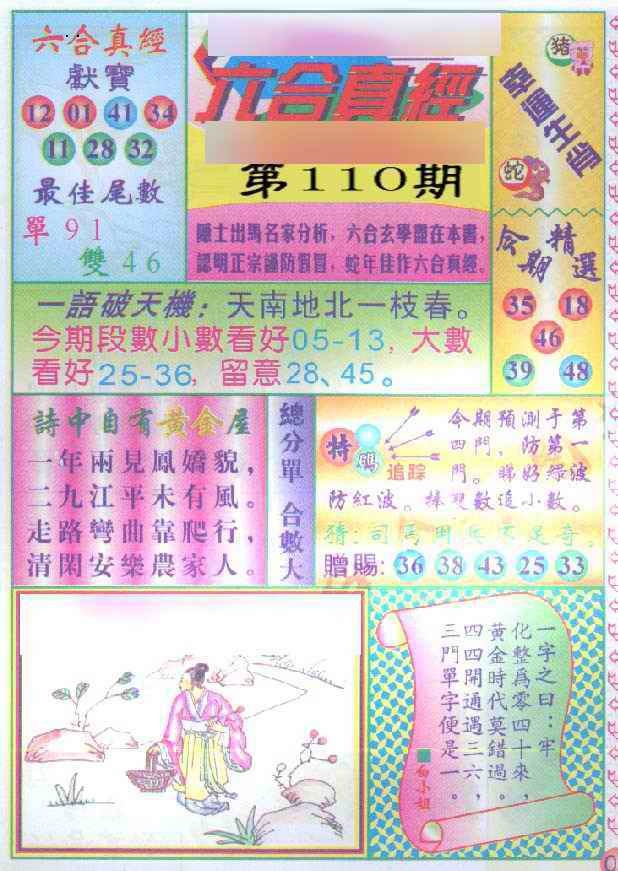 六合真經
獻寶
12 01 41 34
11 28 32
最佳尾數
單91
雙46
六合真經
第110期
隱士出馬名家分析，六合玄學盡在本書，
認明正宗謹防假冒，蛇年佳作六合真經。
豬
蛇
今期精選
35 18
46
39 48
一語破天機：天南地北一枝春。
今期段數小數看好05-13，大數
看好25-36，留意28、45。
詩中自有黃金屋
一年兩見鳳嬌貌，
二九江平未有風。
走路彎曲靠爬行，
清閑安樂農家人。
總分單 合數大
特
追踪
今期預測于第
四門，防第一
門。睇好綠波
防紅波。捧雙數追小數。
猜：司馬用兵不足奇。
贈賜：36 38 43 25 33
一字之曰：牢
化整爲零四十來，
黃金時代莫錯過，
四四開通遇三六，
三門單字便是一。
白小姐